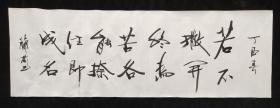 丁酉
若不
撇开
终为
苦各
能捺
住即
成名